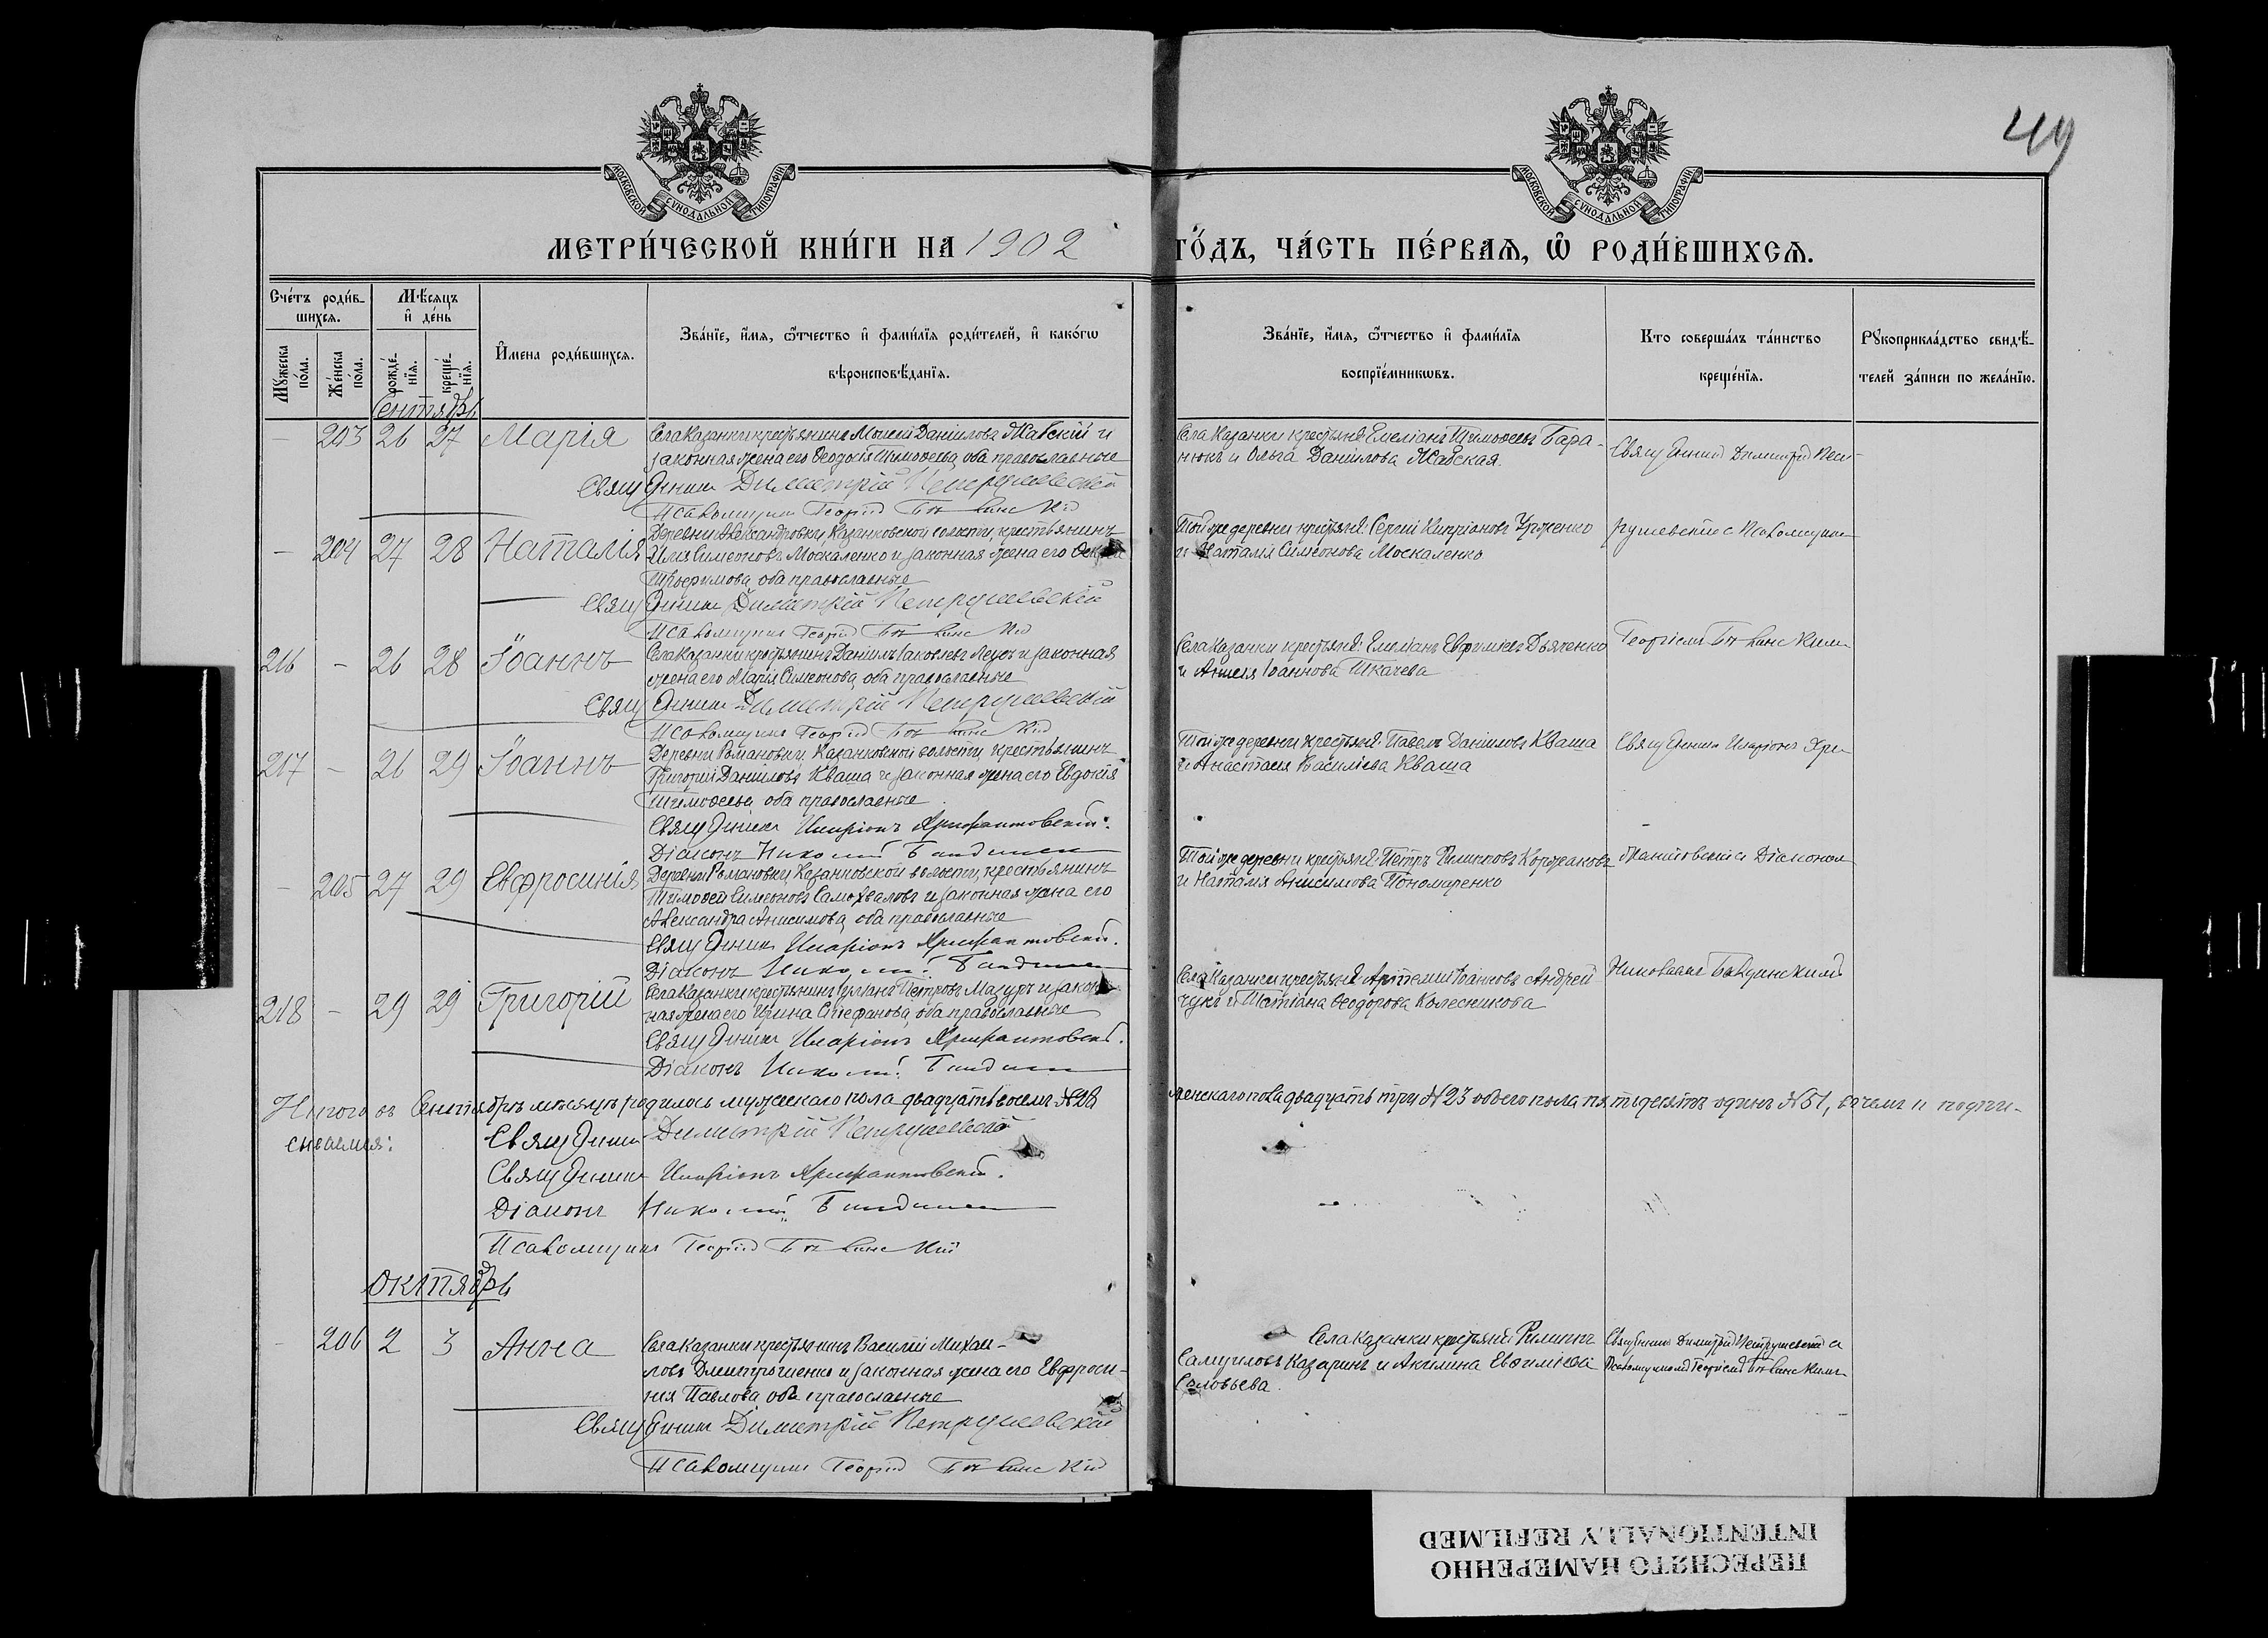 49
МОСКОВСКОЙ СУНОДАЛЬНОЙ ТИПОГРАФІИ
МОСКОВСКОЙ СУНОДАЛЬНОЙ ТИПОГРАФІИ
МЕТРИ́ЧЕСКОЙ КНИ́ГИ НА 1902
ГО́ДЪ, ЧА́СТЬ ПЕ́РВАЯ, Ѡ РОДИ́ВШИХСЯ.
Сче́тъ роди́в-
шихся.
Мѣ́сяцъ
и де́нь
Мꙋ́жеска по́ла.
Же́нска по́ла.
рожде́-
нїя.
креще́-
нїя.
И́мена роди́вшихся.
Зва́нїе, и́мя, ѻ́тчество и фами́лїя роди́телей, и како́гѡ
вѣроисповѣ́данїя.
Зва́нїе, и́мя, ѻ́тчество и фами́лїя
воспрїе́мникѡвъ.
Кто соверша́лъ та́инство
креще́нїя.
Рꙋкоприкла́дство свидѣ́-
телей за́писи по жела́нїю.
Сентябрь
– 203 26 27 Марія
Села Казанки крестьянинъ Моисей Даніиловъ Жабскій и
законная жена его Феодосія Тимофеева, оба православные
Священник Димитрій Петрушевскій
Псаломщик Георгій
Села Казанки крестьяне: Емеліанъ Тимофеевъ Бара-
нюкъ и Ольга Даніилова Жабская.
Священник Димитрій Пет-
– 204 27 28 Наталія
Деревни Александровки, Казанковской волости, крестьянинъ
Илія Симеоновъ Москаленко и законная жена его
Трофимова, оба православные
Священник Димитрій Петрушевскій
Псаломщик Георгій
Той же деревни крестьяне: Сергій Кипріановъ
и Наталія Симеонова Москаленко
рушевскій с Псаломщик
216 – 26 28 Іоаннъ
Села Казанки крестьянинъ Даніилъ Іаковлевъ и законная
жена его Марія Симеонова, оба православные
Священник Димитрій Петрушевскій
Псаломщик Георгій
Села Казанки крестьяне: Емеліанъ Евфиміевъ Дьяченко
и Анисія Іоаннова Ткачева
Георгіем
217 – 26 29 Іоаннъ
Деревни Романовки, Казанковской волости, крестьянинъ
Григорій Даніиловъ Кваша и законная жена его Евдокія
Тимофеева, оба православные
Священник Иларіонъ Хрисанфовскій.
Діаконъ Николай
Той же деревни крестьяне: Павелъ Даніиловъ Кваша
и Анастасія Василіева Кваша
Священник Иларіонъ Хри-
– 205 27 29 Евфросинія
Деревни Романовки, Казанковской волости, крестьянинъ
Тимофей Симеоновъ Самохваловъ и законная жена его
Александра Анисимова, оба православные
Священник Иларіонъ
Діаконъ Николай
Той же деревни крестьяне: Петръ Филипповъ Коржаковъ
и Наталія Анисимова Пономаренко
с Діаконом
218 – 29 29 Григорій
Села Казанки крестьянинъ Іуліанъ Петровъ Мазуръ и закон-
ная жена его Ирина Стефанова, оба православные
Священник Иларіонъ
Діаконъ Николай
Села Казанки крестьяне: Артемій Іоанновъ Андрей-
чукъ и Татіана Феодорова Колесникова
Николаем
Итого въ Сентябрѣ мѣсяцѣ родилось мужескаго пола двадцать восемь №28
женскаго пола двадцать три №23 обоего пола пятьдесятъ одинъ №51, въ чемъ и подпи-
сываемся:
Священник Димитрій Петрушевскій
Священник Иларіонъ
Діаконъ Николай
Псаломщик Георгій
Октябрь
– 206 2 3 Анна
Села Казанки крестьянинъ Василій Михаи-
ловъ Дмитриченко и законная жена его Евфроси-
нія Павлова, оба православные
Священник Димитрій Петрушевскій
Псаломщик Георгій
Села Казанки крестьяне: Филиппъ
Самуиловъ Казаринъ и Акилина Евфиміева
Соловьева.
Священник Димитрій Петрушевскій с
Псаломщиком Георгіем
ПЕРЕСНЯТО НАМЕРЕННО
INTENTIONALLY REFILMED